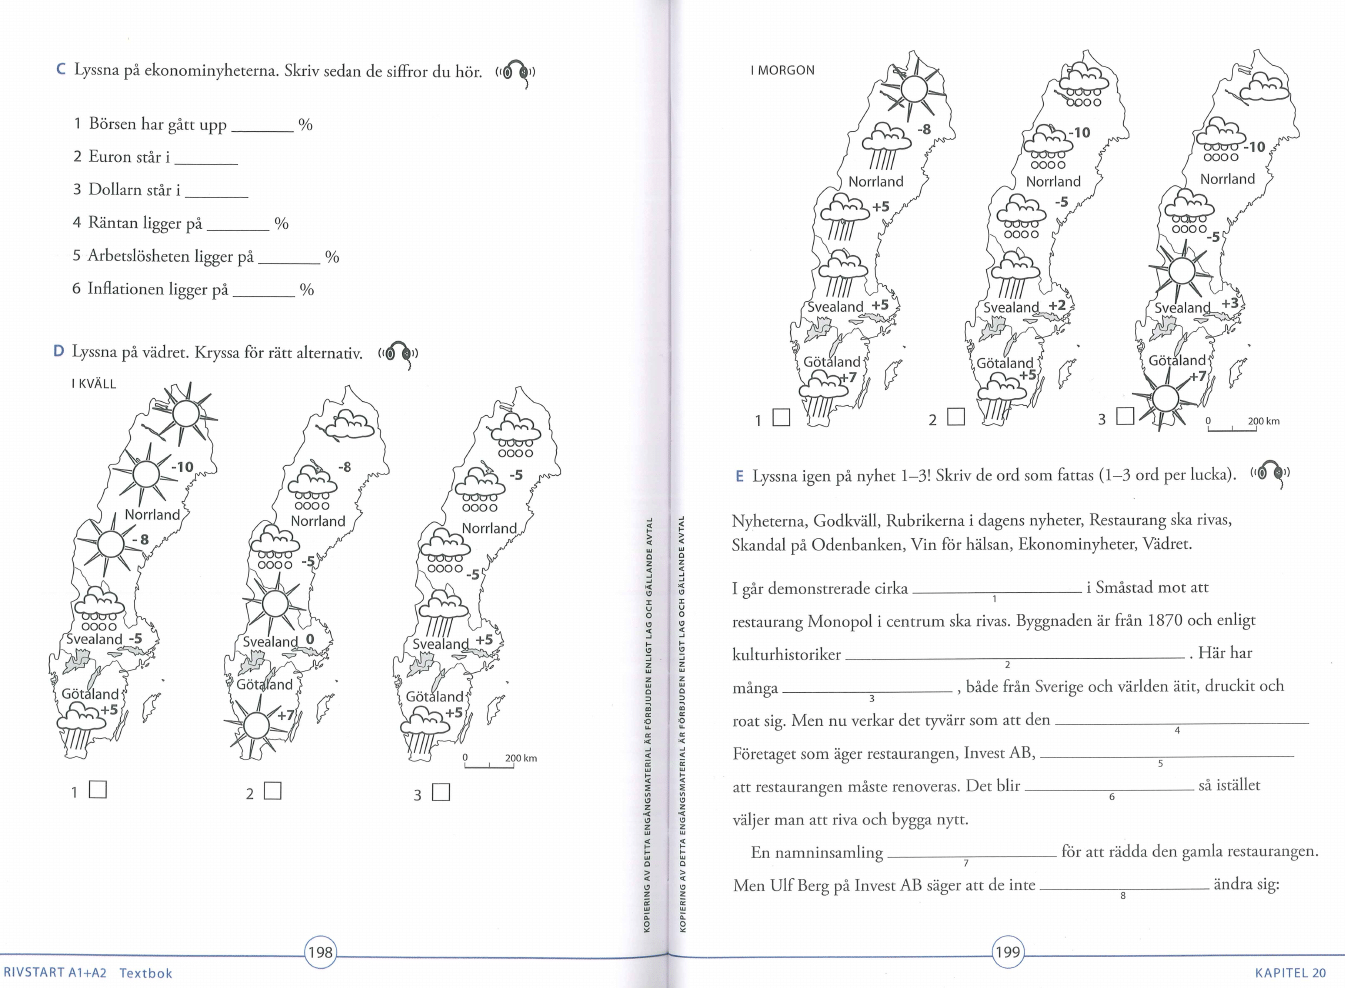 C Lyssna på ekonominyheterna. Skriv sedan de siffror du hör.
1 Börsen har gått upp _______ %
2 Euron står i _______
3 Dollarn står i _______
4 Räntan ligger på _______ %
5 Arbetslösheten ligger på _______ %
6 Inflationen ligger på _______ %
D Lyssna på vädret. Kryssa för rätt alternativ.
I KVÄLL
-10
Norrland
-8
Svealand -5
Götaland
+5
1
-8
Norrland
-5
Svealand 0
Götaland
+7
2
-5
Norrland
-5
Svealand +5
Götaland
+5
0 200 km
3
KOPIERING AV DETTA ENGÅNGSMATERIAL ÄR FÖRBJUDEN ENLIGT LAG OCH GÄLLANDE AVTAL
198
RIVSTART A1+A2 Textbok
I MORGON
-8
Norrland
+5
Svealand +5
Götaland
+7
1
-10
Norrland
-5
Svealand +2
Götaland
+5
2
-10
Norrland
-5
Svealand +3
Götaland
+7
3
0 200 km
E Lyssna igen på nyhet 1–3! Skriv de ord som fattas (1–3 ord per lucka).
Nyheterna, Godkväll, Rubrikerna i dagens nyheter, Restaurang ska rivas,
Skandal på Odenbanken, Vin för hälsan, Ekonominyheter, Vädret.
I går demonstrerade cirka _______ i Småstad mot att
1
restaurang Monopol i centrum ska rivas. Byggnaden är från 1870 och enligt
kulturhistoriker _______ . Här har
2
många _______ , både från Sverige och världen ätit, druckit och
3
roat sig. Men nu verkar det tyvärr som att den _______
4
Företaget som äger restaurangen, Invest AB, _______
5
att restaurangen måste renoveras. Det blir _______ så istället
6
väljer man att riva och bygga nytt.
En namninsamling _______ för att rädda den gamla restaurangen.
7
Men Ulf Berg på Invest AB säger att de inte _______ ändra sig:
8
KOPIERING AV DETTA ENGÅNGSMATERIAL ÄR FÖRBJUDEN ENLIGT LAG OCH GÄLLANDE AVTAL
199
KAPITEL 20